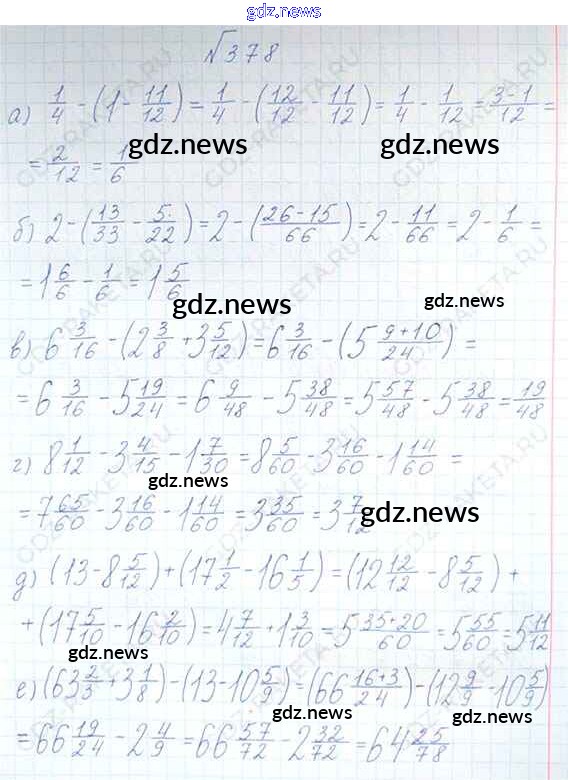 gdz.news
№378
а) 1/4 - (1 - 11/12) = 1/4 - (12/12 - 11/12) = 1/4 - 1/12 = (3-1)/12 =
gdz.news gdz.news
= 2/12 = 1/6
б) 2 - (13/33 - 5/22) = 2 - ((26-15)/66) = 2 - 11/66 = 2 - 1/6 =
= 1 6/6 - 1/6 = 1 5/6
gdz.news
в) 6 3/16 - (2 3/8 + 3 5/12) = 6 3/16 - (5 (9+10)/24) =
= 6 3/16 - 5 19/24 = 6 9/48 - 5 38/48 = 5 57/48 - 5 38/48 = 19/48
г) 8 1/12 - 3 4/15 - 1 7/30 = 8 5/60 - 3 16/60 - 1 14/60 =
gdz.news
= 7 65/60 - 3 16/60 - 1 14/60 = 3 35/60 = 3 7/12
gdz.news
д) (13 - 8 5/12) + (17 1/2 - 16 1/5) = (12 12/12 - 8 5/12) +
+ (17 5/10 - 16 2/10) = 4 7/12 + 1 3/10 = 5 (35+20)/60 = 5 55/60 = 5 11/12
gdz.news
е) (63 2/3 + 3 1/8) - (13 - 10 5/9) = (66 (16+3)/24) - (12 9/9 - 10 5/9)
gdz.news
= 66 19/24 - 2 4/9 = 66 57/72 - 2 32/72 = 64 25/78
gdz.news
GDZ-RAKETA.RU